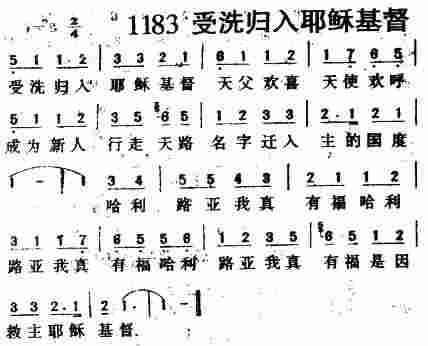 2/4
1183 受洗归入耶稣基督
5 1 1·2 | 3 3 2 1 | 6 1 1 2 | 1 7 6 5 |
受洗归入 耶稣基督 天父欢喜 天使欢呼
5 1 1·2 | 3 3 5 6 5 | 1 2 3 3 | 2·1 2 1 |
成为新人 行走天路 名字迁入 主的国度
1 - | 1 - | 3 4 | 5 5 4 3 | 2 1 1 1 |
哈利 路亚我真 有福哈利
3 1 1 7 | 6 5 5 6 | 1 2 3 5 | 6 5 1 2 |
路亚我真 有福哈利 路亚我真 有福是因
3 3 2·1 | 2 1· | 1 - |
救主耶稣 基督.